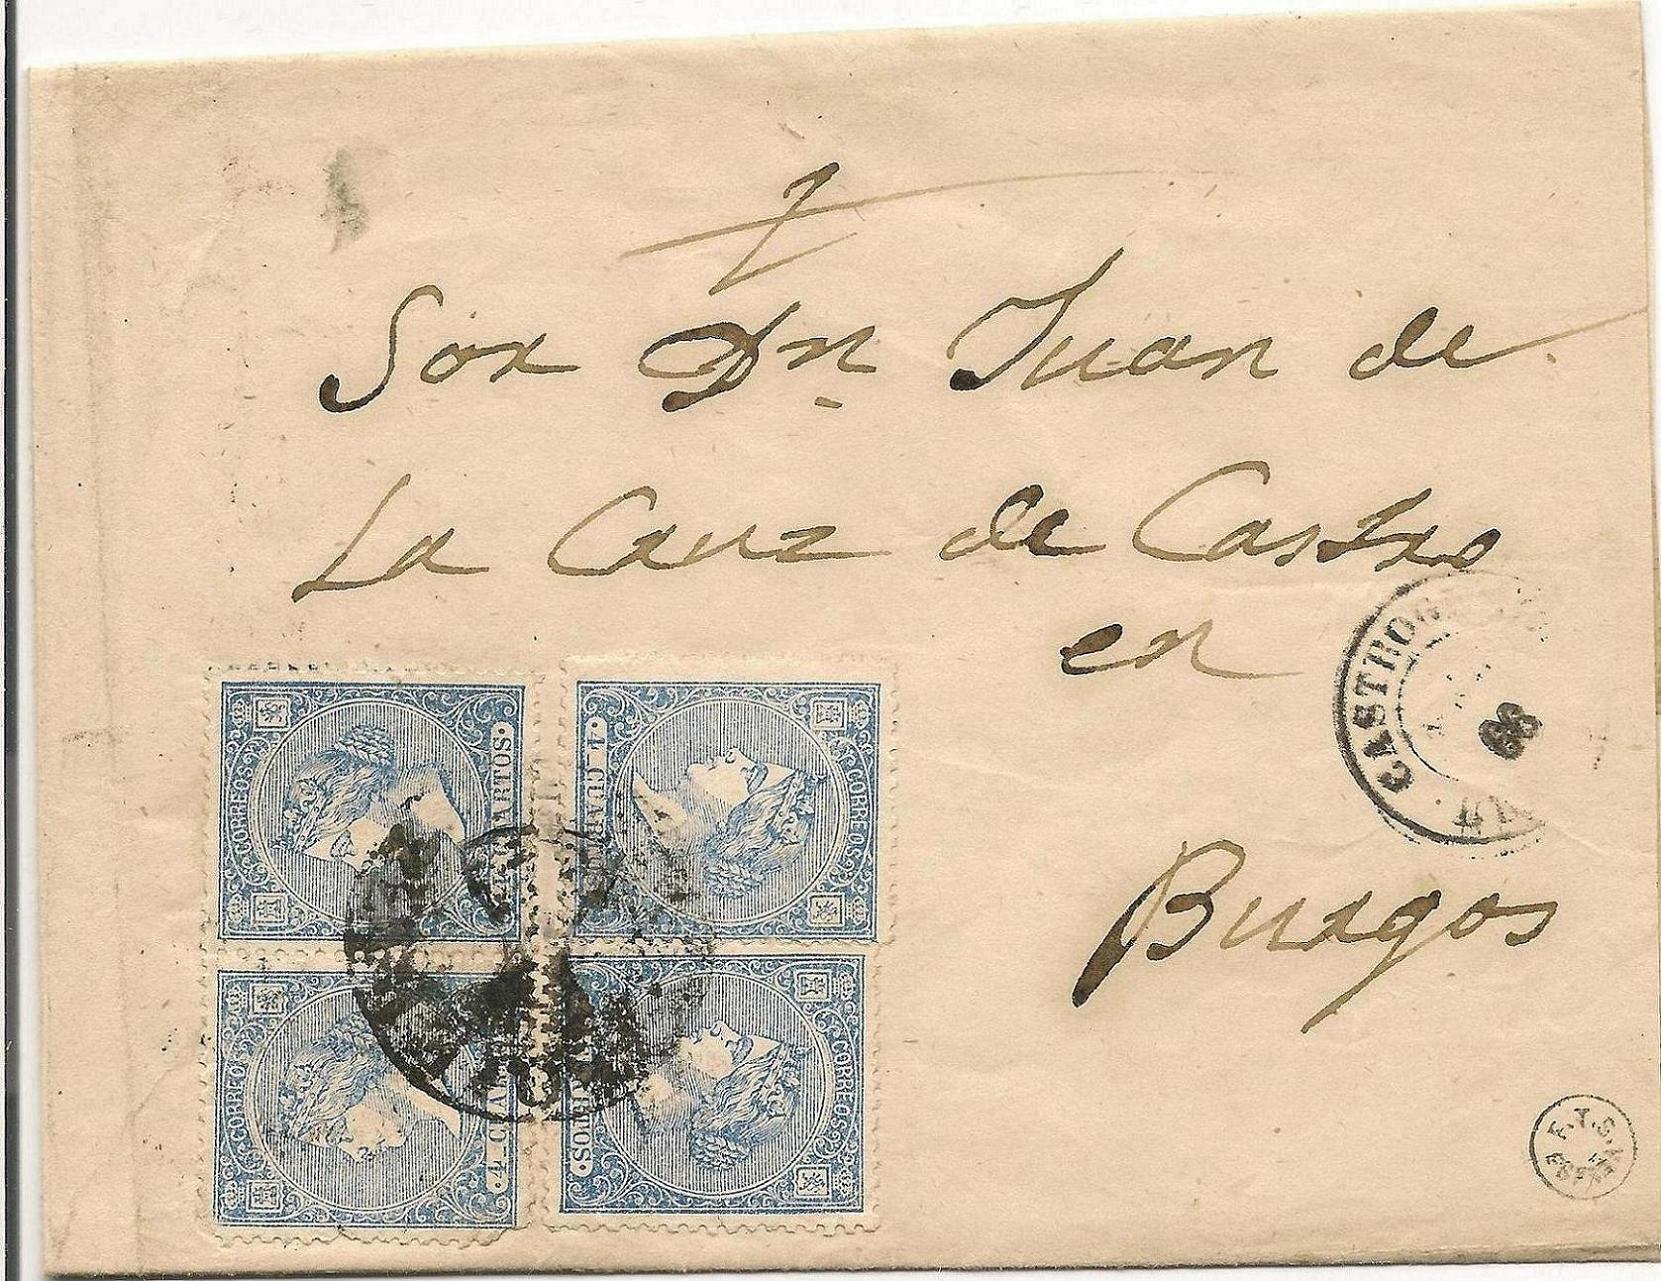 Sor Dn Juan de
La Cruz de Castro
en
Burgos
CASTROG
66
CORREOS
4 CUARTOS
4 CUARTOS
CORREOS
CORREOS
4 CUARTOS
CORREOS
F.Y.S.
ESPAÑA